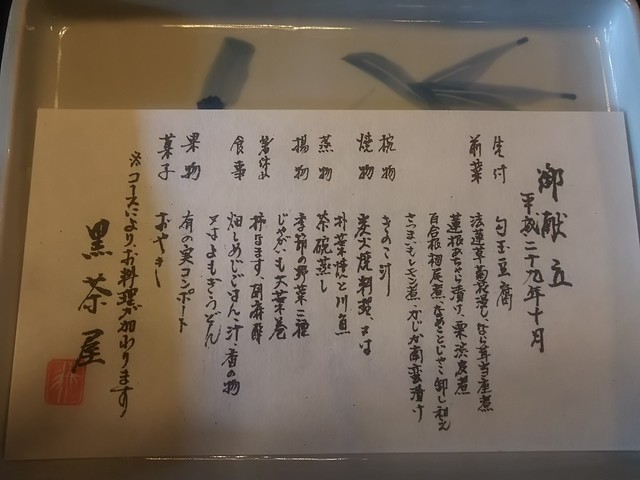 御献立
平成二十九年十月
先付 勾玉豆腐
前菜 法蓮草菊花浸し なら茸当座煮
蓮根あちゃら漬け 栗渋皮煮
百合根梅尾煮 なめことじゃこ卸し和え
さつまいもレモン煮 かじか南蛮漬け
椀物 きのこ汁
焼物 炭火焼料理 又は
朴葉焼と川魚
蒸物 茶碗蒸し
揚物 季節の野菜二種
じゃがいも大葉巻
箸休め 柿なます 胡麻酢
食事 畑しめじごはん 汁 香の物
又はよもぎうどん
果物 有の実コンポート
菓子 おやき
※コースにより、お料理が加わります
黒茶屋